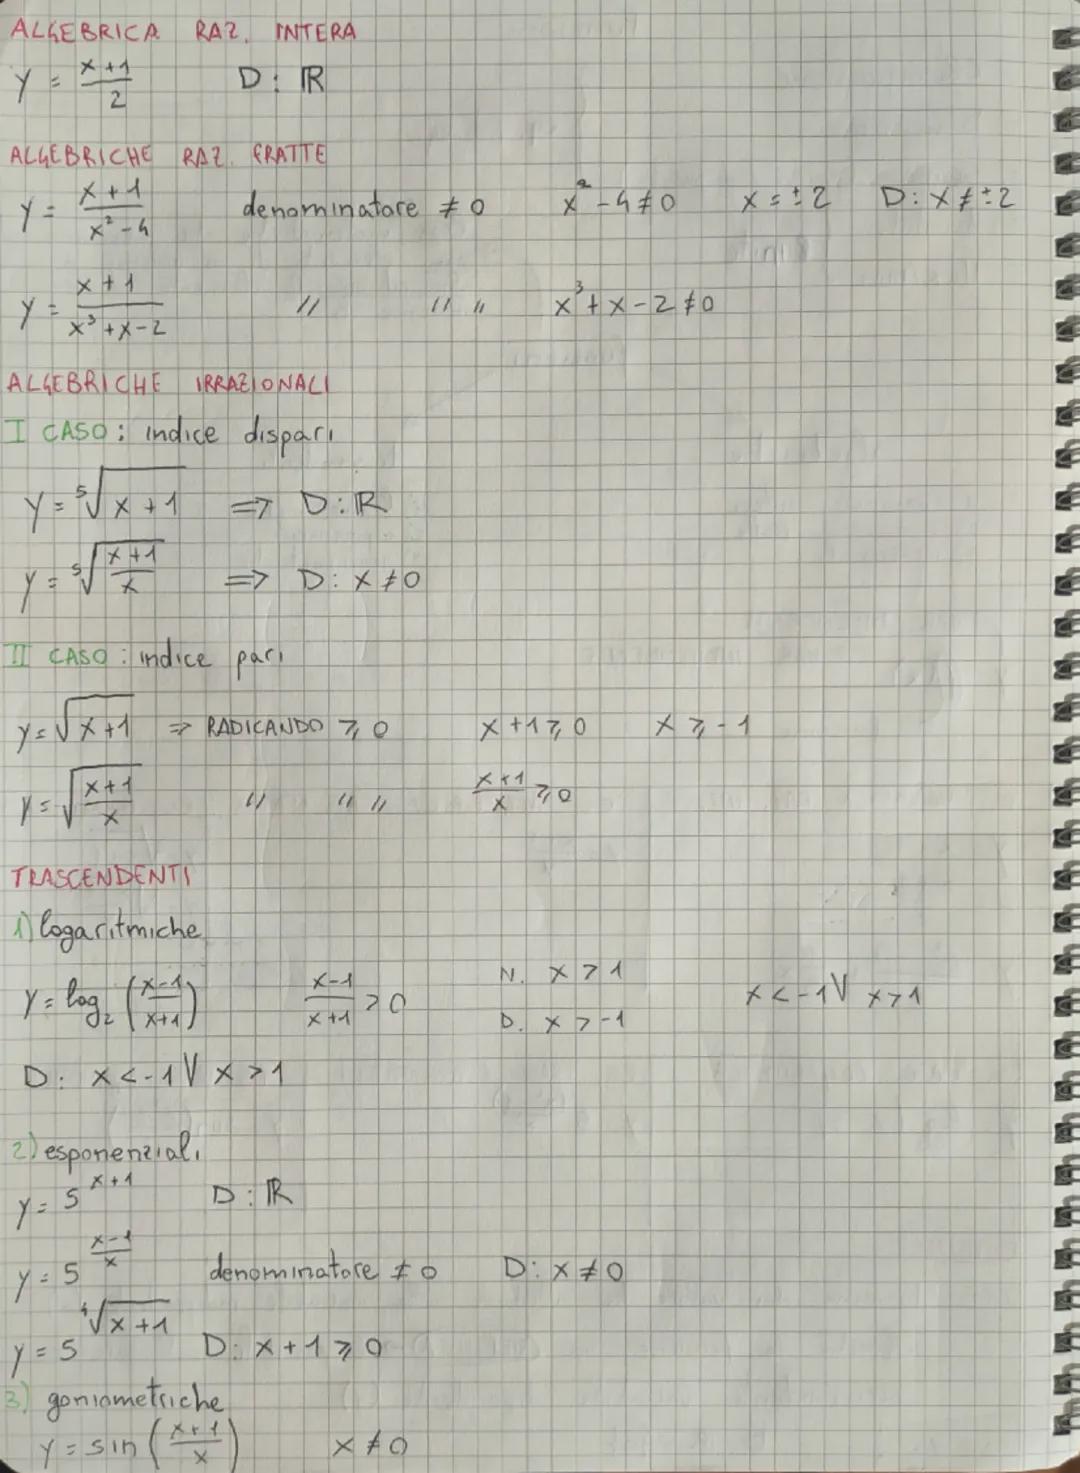 ALGEBRICA RAZ. INTERA
y = (x+1)/2 D: ℝ
ALGEBRICHE RAZ. FRATTE
y = (x+1)/(x²-4) denominatore ≠ 0 x²-4≠0 x=±2 D: x≠±2
y = (x+1)/(x³+x-2) // // // x³+x-2≠0
ALGEBRICHE IRRAZIONALI
I CASO: indice dispari
y = ⁵√(x+1) ⇒ D: ℝ
y = ⁵√((x+1)/x) ⇒ D: x≠0
II CASO: indice pari
y = √(x+1) ⇒ RADICANDO ⩾ 0 x+1⩾0 x⩾-1
y = √((x+1)/x) // // // (x+1)/x ⩾0
TRASCENDENTI
1) logaritmiche
y = log₂ ((x-1)/(x+1)) (x-1)/(x+1) >0 N. x>1 D. x>-1 x<-1 V x>1
D: x<-1 V x>1
2) esponenziali
y = 5^(x+1) D: ℝ
y = 5^((x-1)/x) denominatore ≠ 0 D: x≠0
y = 5^(⁴√(x+1)) D: x+1⩾0
3) goniometriche
y = sin ((x+1)/x) x≠0